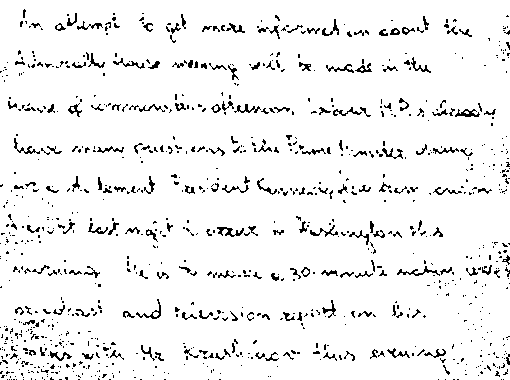 An attempt to get more information about the
Admiralty House meeting will be made in the
house of Commons this afternoon. Labour M.P.s already
have many questions to the Prime Minister asking
for a statement President Kennedy flew from London
airport last night to arrive in Washington this
morning. He is to make a 30-minute nation wide
broadcast and television report on his
talks with Mr. Krushchov this evening